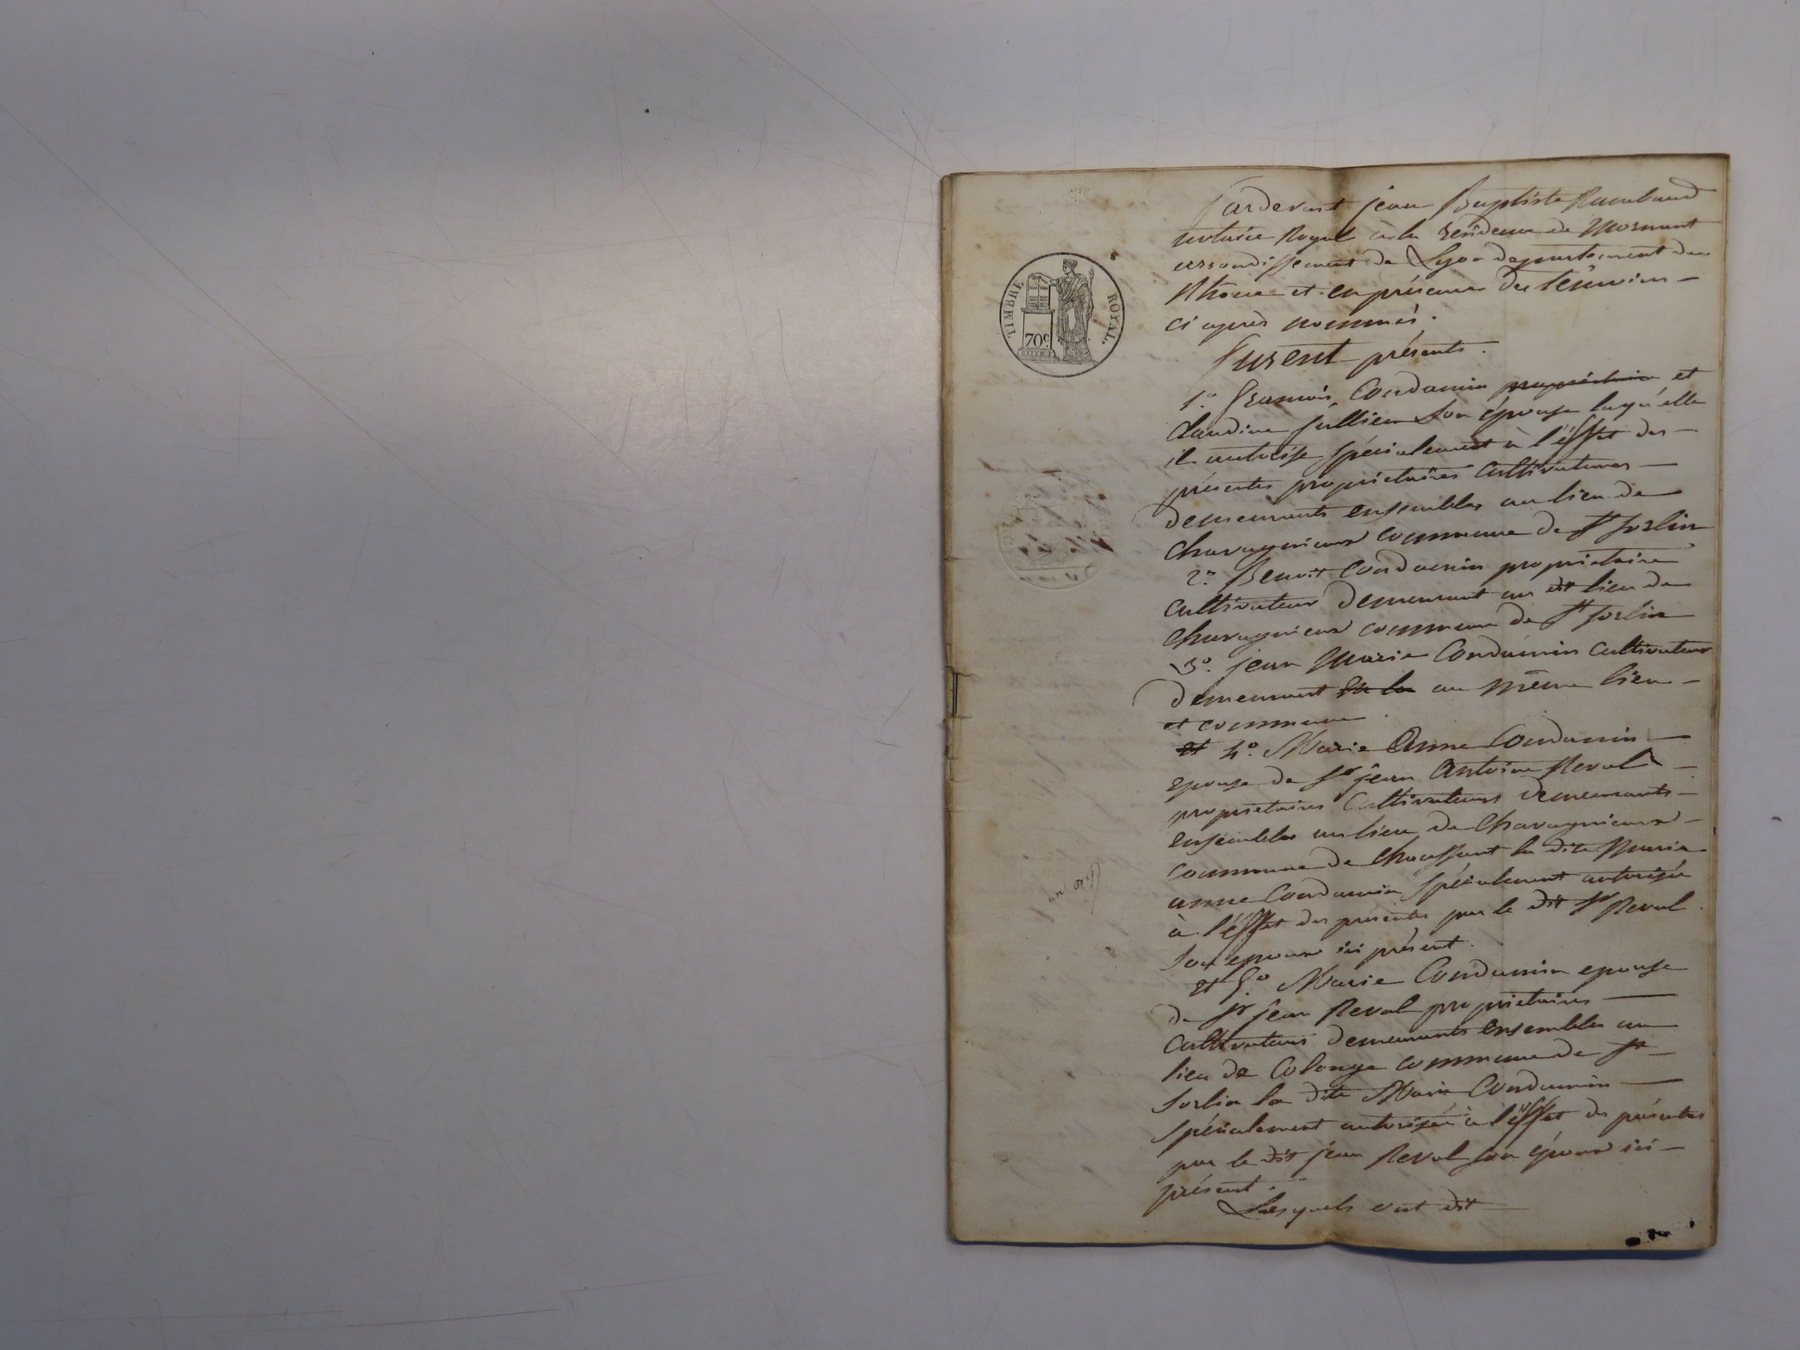 TIMBRE ROYAL.
70c.
Pardevant jean Baptiste Raimbaud
notaire Royal à la résidence de Mornant
arrondissement de Lyon departement du
Rhone et en présence des témoins
ci après nommés.
Furent présents.
1.º François Condamin propriétaire et
Claudine Jullien son épouse laqu'elle
il autorise spécialement à l'éffet des
présentes propriétaires cultivateurs
demeurants ensembles au lieu de
Chavagnieux commune de St Sorlin
2.º Benoit Condamin propriétaire
cultivateur demeurant au dit lieu de
Chavagnieux commune de St Sorlin
3.º jean Marie Condamin cultivateur
demeurant en la au même lieu
et commune
et 4.º Marie Anne Condamin
epouse de Sr jean Antoine Reval
propriétaires cultivateurs demeurants
ensembles au lieu de Chavagnieux
commune de Chaussant la dite Marie
anne Condamin spécialement autorisée
à l'éffet des présentes par le dit Sr Reval
son epoux ici présent.
et 5.º Marie Condamin epouse
de Sr jean Reval propriétaires
cultivateurs demeurants ensembles au
lieu de Colonge commune de St
Sorlin la dite Marie Condamin
spécialement autorisée à l'éffet des présentes
par le dit jean Reval son époux ici
présent.
Lesquels ont dit